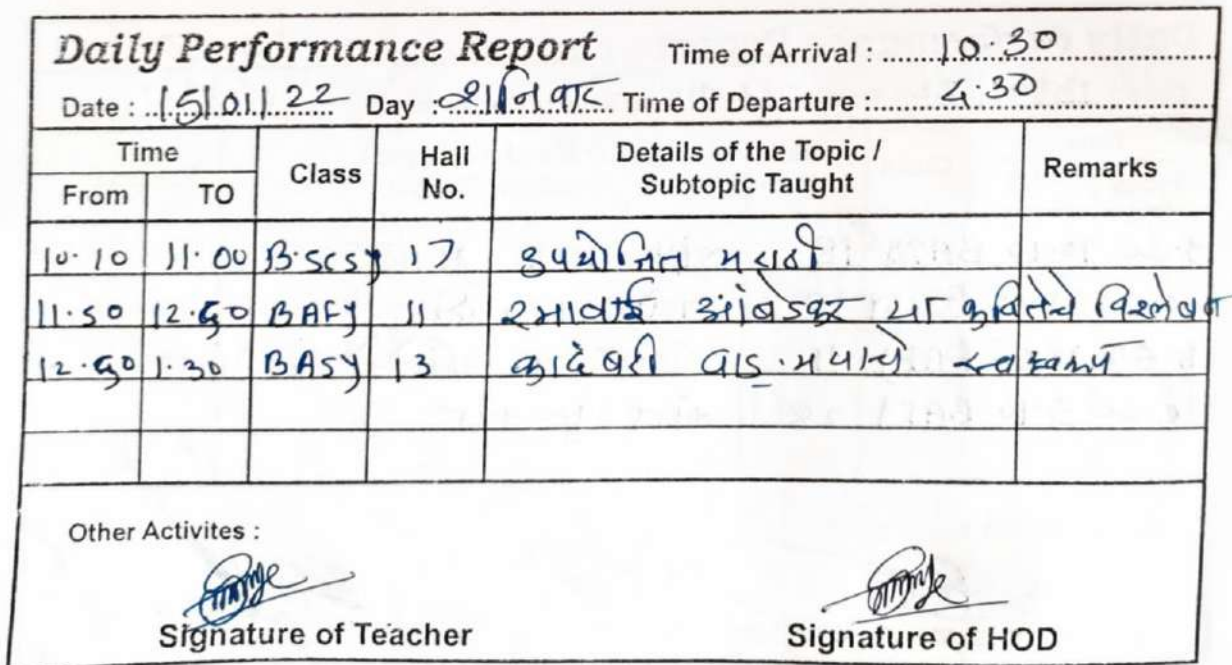 Daily Performance Report Time of Arrival : 10.30
Date : 15/01/22 Day : शनिवार Time of Departure : 4.30
Time Class Hall No. Details of the Topic / Subtopic Taught Remarks
From TO
10.10 11.00 B.SCSY 17 उपयोजित मराठी
11.50 12.40 BAFY 11 रमाबाई आंबेडकर या कवितेचे विश्लेषण
12.40 1.30 BASY 13 कादंबरी वाङ्मयाचे स्वरूप
Other Activites :
Signature of Teacher Signature of HOD